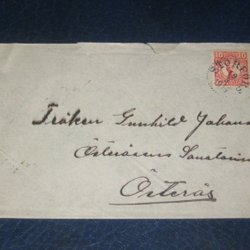 10
Fröken Gunhild Johans
Österåsens Sanatorium
Österås